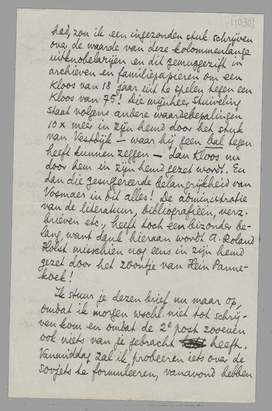 [1030]
had, zou ik een ingezonden stuk schrijven
over de waarde van deze kolommenlange
uitknobelarijen en dit gemugezift in
archieven en familiepapieren om een
Kloos van 18 jaar uit te spelen tegen een
Kloos van 75! Die mijnheer Stuiveling
staat volgens andere waardebepalingen
10 x méér in zijn hemd door het stuk
van Vestdijk — waar hij geen bal tegen
heeft kunnen zeggen — dan Kloos nu
door hem in zijn hemd gezet wordt. En
dan die gesuggereerde belangrijkheid van
Vosmaer in dit alles! De administratie
van de literatuur, bibliografieën, verz.
brieven etc, heeft toch een bizonder be-
lang, want dank hieraan wordt A. Roland
Holst misschien nog eens in zijn hemd
gezet door het zoontje van Hein Panne-
koek!
Ik stuur je dezen brief nu maar op,
omdat ik morgen wschl. niet tot schrij-
ven kom en omdat de 2e post zooeven
ook niets van je gebracht heeft.
Vanmiddag zal ik probeeren iets over de
Sovjets te formuleeren, vanavond hebben